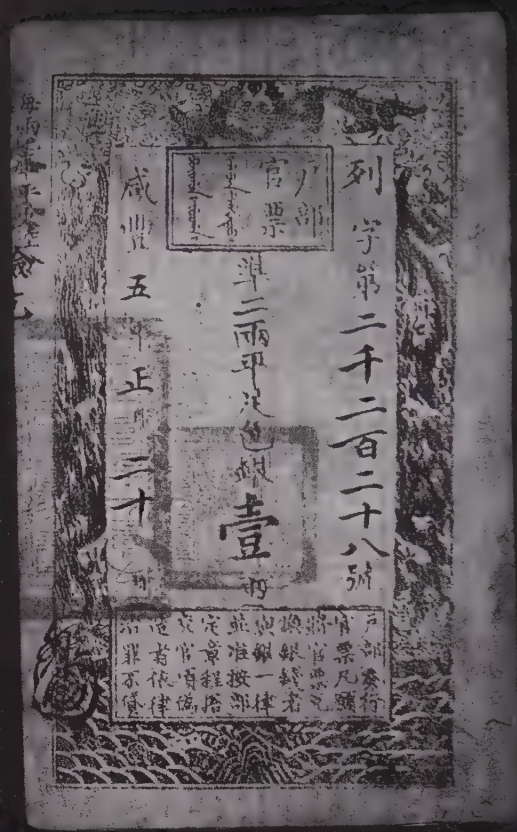 戶部
官票
列字第二千二百二十八號
準二兩平足色銀壹兩
咸豐五年正月二十日
戶部奏行
官票凡願
將官票兌
換銀錢者
與銀一律
並准按部
定章程搭
交官項偽
造者依律
治罪不貸